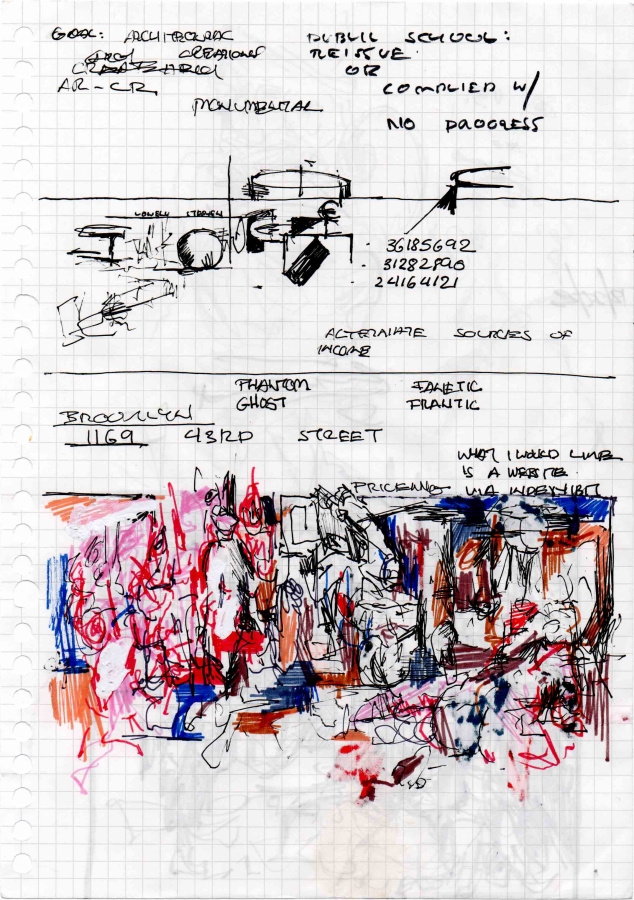 GOAL: ARCHITECTURAL
CREATIONS
AR-CR
MONUMENTAL
PUBLIC SCHOOL:
REISSUE
OR
COMPLIED W/
NO PROGRESS
LONELY
36185692
31282890
24164121
ALTERNATE SOURCES OF
INCOME
PHANTOM FANETIC
GHOST FRANTIC
BROOKLYN
1169 43RD STREET
WHAT I WOULD LIKE
IS A WEBSITE
PRICKING VIA INDEXHIBIT